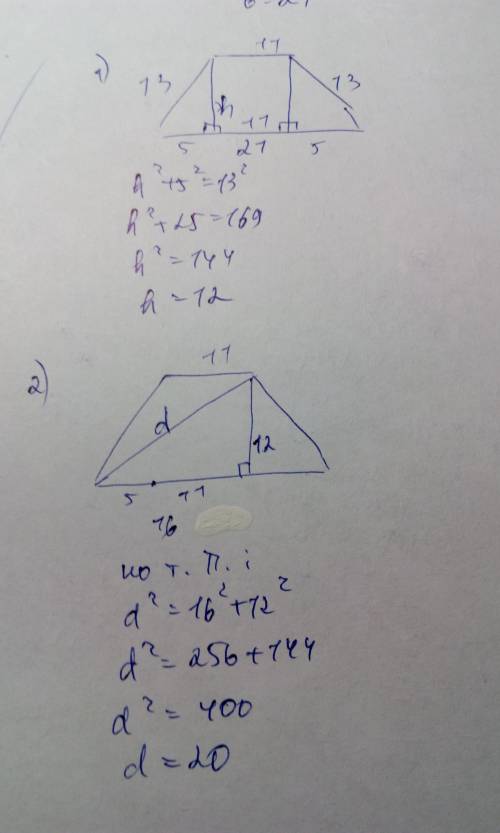 1)
11
13
h
13
11
5
21
5
h²+5²=13²
h²+25=169
h²=144
h=12
2)
11
d
12
5
11
16
по т. П. :
d²=16²+12²
d²=256+144
d²=400
d=20